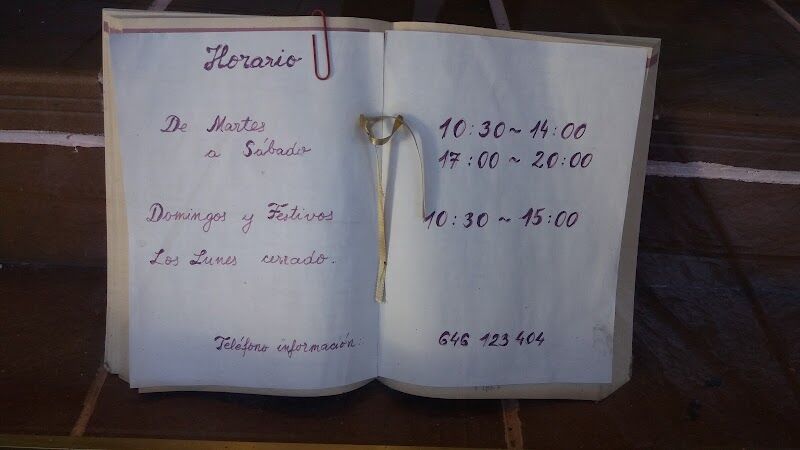 Horario
De Martes 10:30 ~ 14:00
a Sábado 17:00 ~ 20:00
Domingos y Festivos 10:30 ~ 15:00
Los Lunes cerrado.
Teléfono información: 646 123 404